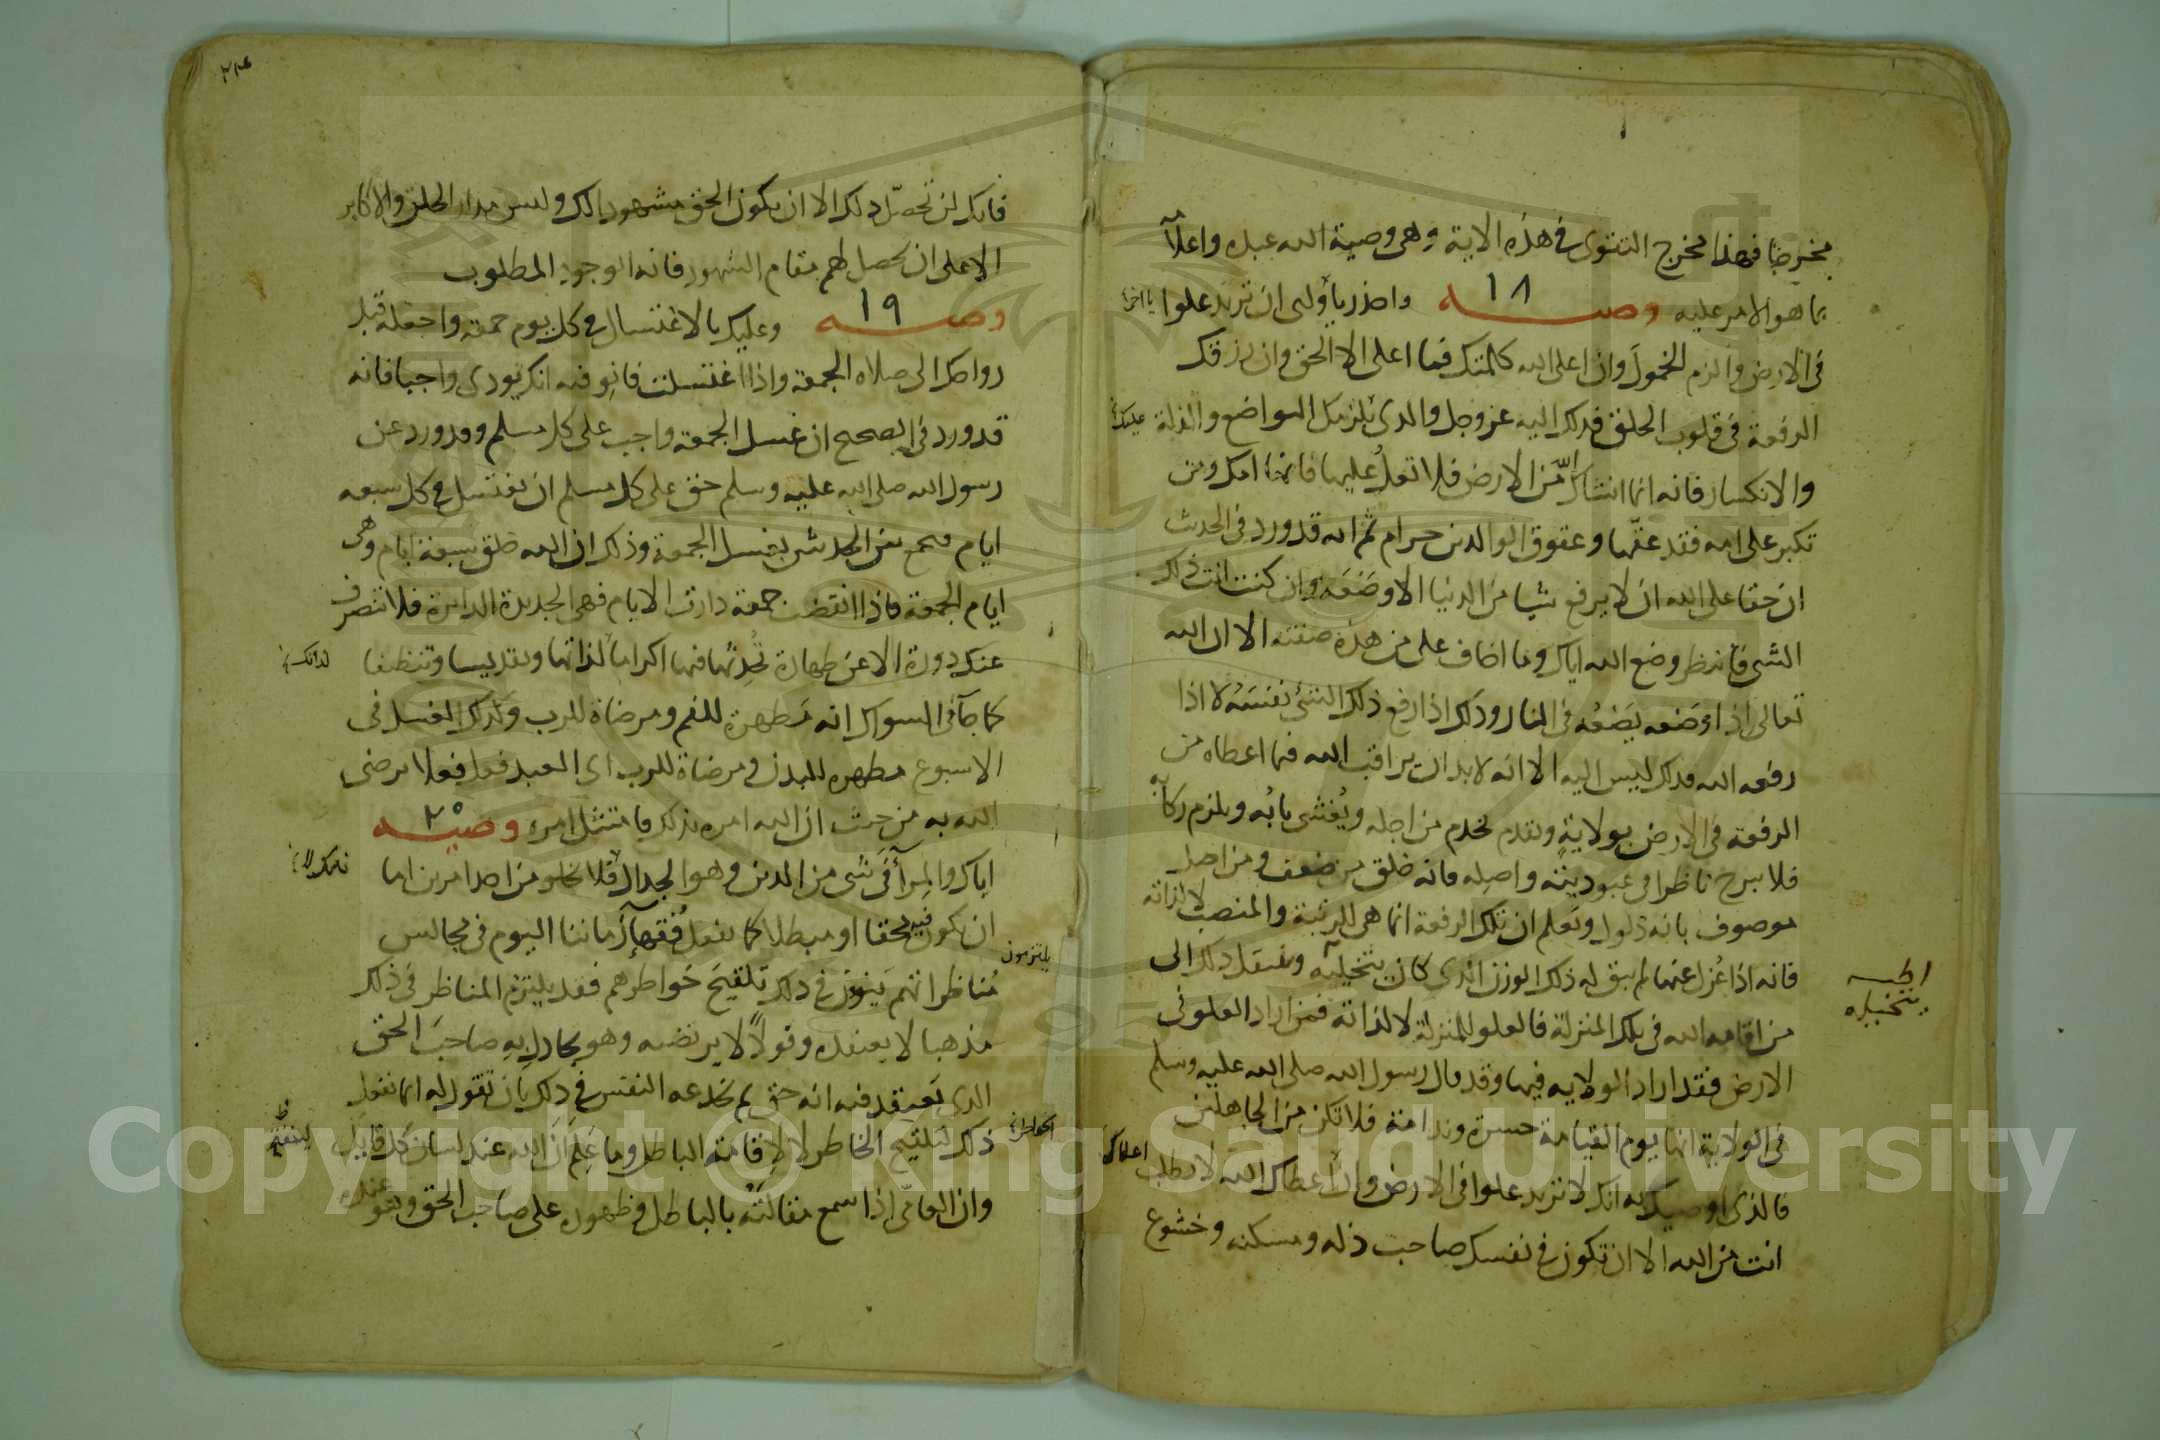 مخرجا فهذا مخرج التقوى في هذه الاية وهى وصية الله عبده واعلاما
بما هو الامر عليه وصيـــه ١٨ واحذر يا ولى ان تريد علوا
في الارض والزم الخمول وان اعلى الله كلمتك فما اعلى الا الحق وان رزقك
الرفعة في قلوب الخلق فذلك اليه عز وجل والذى يلزمك التواضع والذلة
والانكسار فانه انما انشاك من الارض فلا تعلُ عليها فانها امك ومن
تكبر على امه فقد عقّها وعقوق الوالدين حرام ثم انه قد ورد في الحديث
ان حقا على الله ان لا يرفع شيا من الدنيا الا وضعه وان كنت انت ذلك
الشى فانتظر وضع الله اياك وما اخاف على من هذه صفته الا ان الله
تعالى اذا وضعه يضعُه في النار وذلك اذا رفع ذلك الشئ نفسَه لا اذا
رفعه الله فذلك ليس اليه الا انه لا بد ان يراقب الله فيما اعطاه من
الرفعة في الارض بولاية وتقدم يخدم من اجله ويُغشى بابُه ويلزم ركابه
فلا يبرح ناظرا في عبوديته واصله فانه خلق من ضعف ومن اصل
موصوف بانه ذلول وتعلم ان تلك الرفعة انما هى للرتبة والمنصب لا لذاته
فانه اذا عُزل عنها لم يبق له ذلك الوزن الذى كان يتخيله وينتقل ذلك الى
من اقامه الله في تلك المنزلة فالعلو للمنزلة لا لذاته فمن اراد العلو في
الارض فقد اراد الولايه فيها وقد قال رسول الله صلى الله عليه وسلم
في الولاية انها يوم القيامة حسرة وندامة فلا تكن من الجاهلين
فالذى اوصيك به انك لا تريد علوا في الارض وان اعطاك الله لا تطلب
انت من الله الا ان تكون في نفسك صاحب ذله ومسكنه وخشوع
فانك لن تحصّل ذلك الا ان يكون الحق مشهودا لك وليس مدار الخلق والاكابر
الاعلى ان يحصل لهم مقام الشهود فانه الوجود المطلوب
وصيـــه ١٩ وعليك بالاغتسال في كل يوم جمعة واجعله قبل
رواحك الى صلاه الجمعة واذا اغتسلت فانو فيه انك تودى واجبا فانه
قد ورد في الصحيح ان غسل الجمعة واجب على كل مسلم وقد ورد عن
رسول الله صلى الله عليه وسلم حق على كل مسلم ان يغتسل في كل سبعه
ايام فيجمع بين الحديثين بغسل الجمعة وذلك ان الله خلق سبعة ايام وهى
ايام الجمعة فاذا انقضت جمعة دارت الايام فهى الجديدة الدايرة فلا تنصرف
عنك دورة الا عن طهارة تُحدثها فيها اكراما لذاتها وتقديسا وتنظيفا
كما جآ في السواك انه مَطهرة للفم ومرضاة للرب وكذلك الغسل في
الاسبوع مطهره للبدن ومرضاة للرب اى العبد فعل فعلا يرضى
الله به من حيث ان الله امره بذلك فامتثل امره وصيـــه ٢٠
اياك والمِرآ في شى من الدين وهو الجدال فلا تخلو من احد امرين اما
ان تكون فيه محقا او مبطلا كما يفعل فُقهآ زماننا اليوم في مجالس
مُناظراتهم ينوون في ذلك تلقيح خواطرهم فقد يلتزم المناظر في ذلك
مذهبا لا يعتقده وقولا لا يرتضيه وهو يجادل به صاحبَ الحق
الذى يعتقد فيه انه حق ثم تخدعه النفس في ذلك بان تقول له انما نفعل
ذلك لتلقيح الخاطر لا لاقامة الباطل وما عَلِم ان الله عند لسان كل قايل
وان العامّى اذا سمع مقالتَه بالباطل وظهوره على صاحب الحق وهو عنده